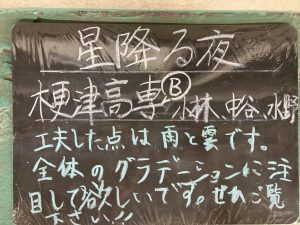 星降る夜
梗津高専Ⓑ 小林、中谷、水野
工夫した点は雨と雲です。
全体のグラデーションに注
目して欲しいです。ぜひご覧
下さい!!